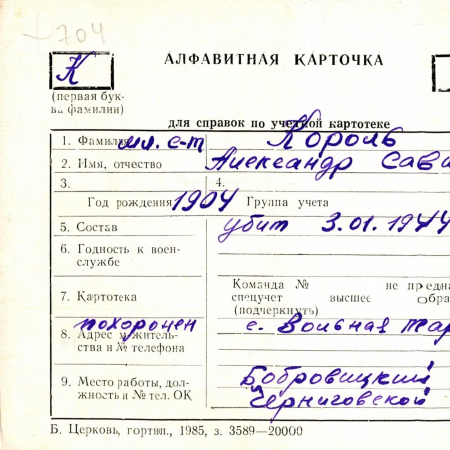 704
К
АЛФАВИТНАЯ КАРТОЧКА
(первая бук-
ва фамилии)
для справок по учетной картотеке
1. Фамилия мл. с-т Король
2. Имя, отчество Александр Сави
3. 4.
Год рождения 1904 Группа учета
5. Состав убит 3.01.1944
6. Годность к воен-
службе
Команда № не предна
7. Картотека спецучет высшее обра
(подчеркнуть)
похоронен с. Вольная
8. Адрес житель-
ства и № телефона
9. Место работы, дол- Бобровицкий
жность и № тел. ОК Черниговской
Б. Церковь, гортип., 1985, з. 3589—20000